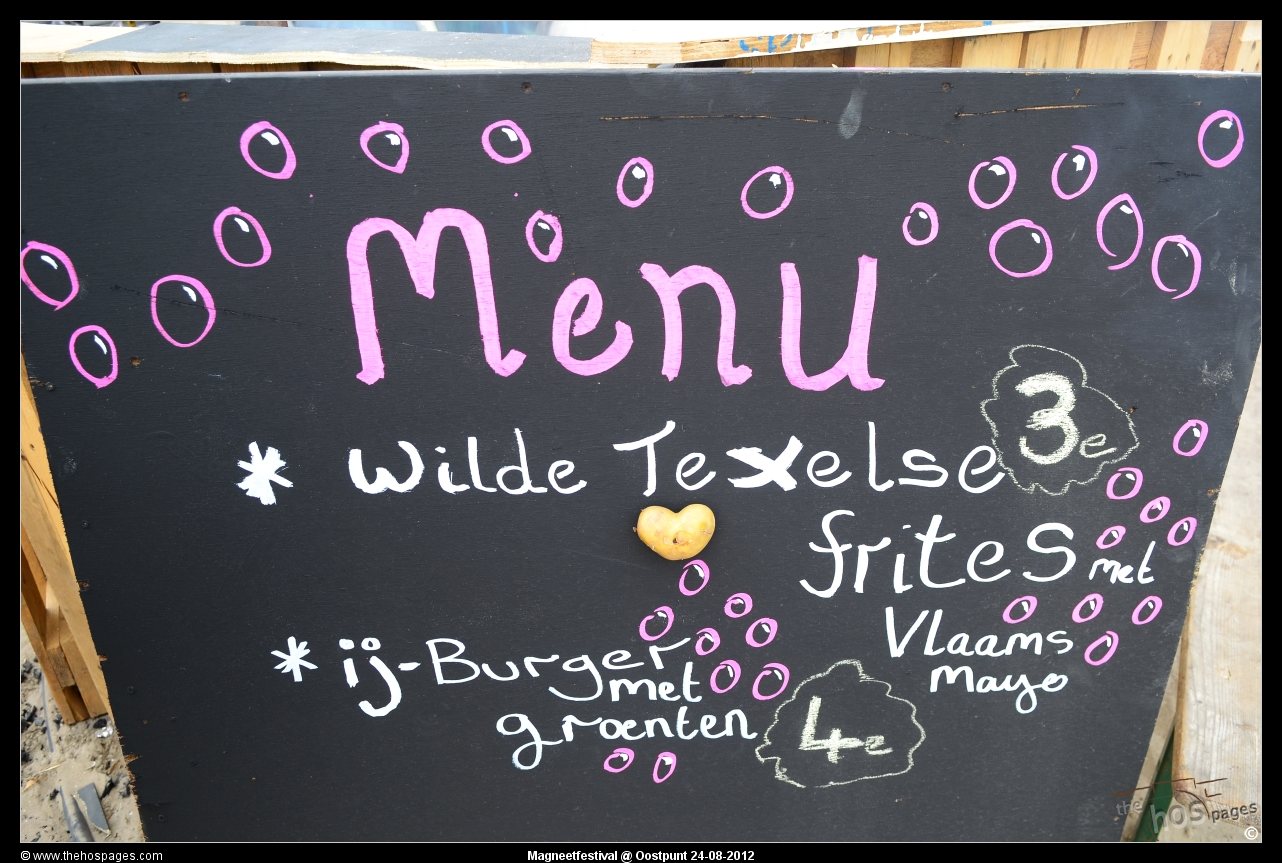 Menu
* Wilde Texelse 3e
frites met
Vlaams
mayo
* ij-Burger
met
groenten 4e
the hos pages
©
© www.thehospages.com
Magneetfestival @ Oostpunt 24-08-2012